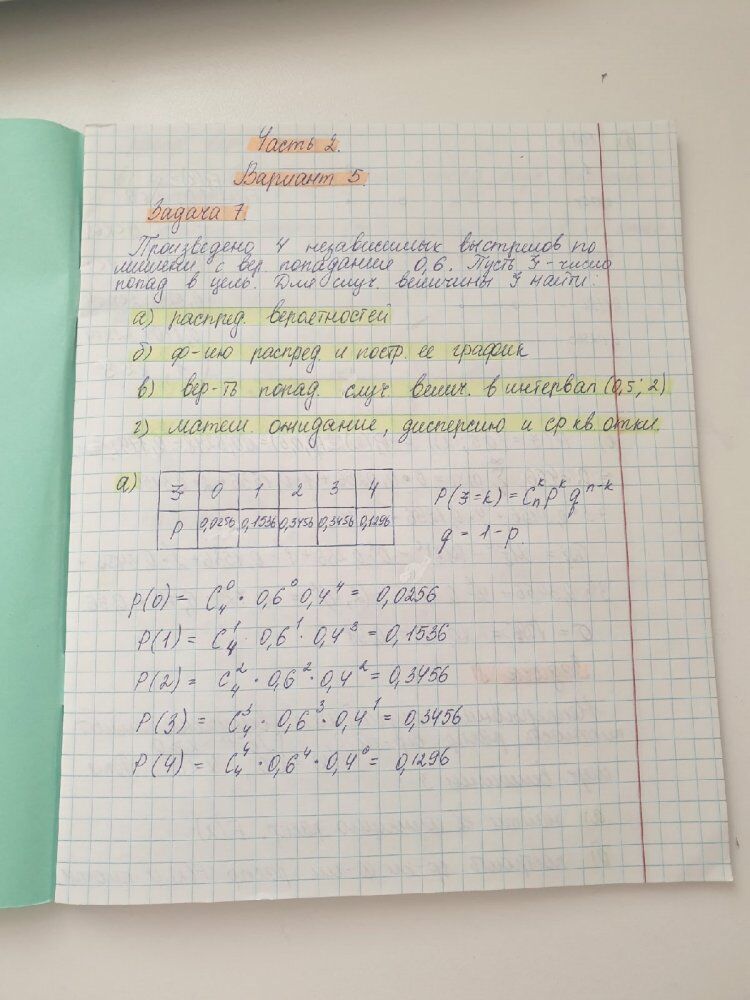 Часть 2.
Вариант 5.
Задача 7.
Произведено 4 независимых выстрелов по
мишени с вер. попадания 0,6. Пусть ξ - число
попад в цель. Для случ. величины ξ найти:
а) распред. вероятностей
б) ф-ию распред. и постр. ее график
в) вер-ть попад. случ. велич. в интервал (0,5; 2)
г) матем. ожидание, дисперсию и ср кв. откл.
а) ξ 0 1 2 3 4
P 0,0256 0,1536 0,3456 0,3456 0,1296
P(ξ=k) = Cₙᵏ pᵏ qⁿ⁻ᵏ
q = 1-p.
P(0) = C₄⁰ · 0,6⁰ 0,4⁴ = 0,0256
P(1) = C₄¹ · 0,6¹ · 0,4³ = 0,1536
P(2) = C₄² · 0,6² · 0,4² = 0,3456
P(3) = C₄³ · 0,6³ · 0,4¹ = 0,3456
P(4) = C₄⁴ · 0,6⁴ · 0,4⁰ = 0,1296